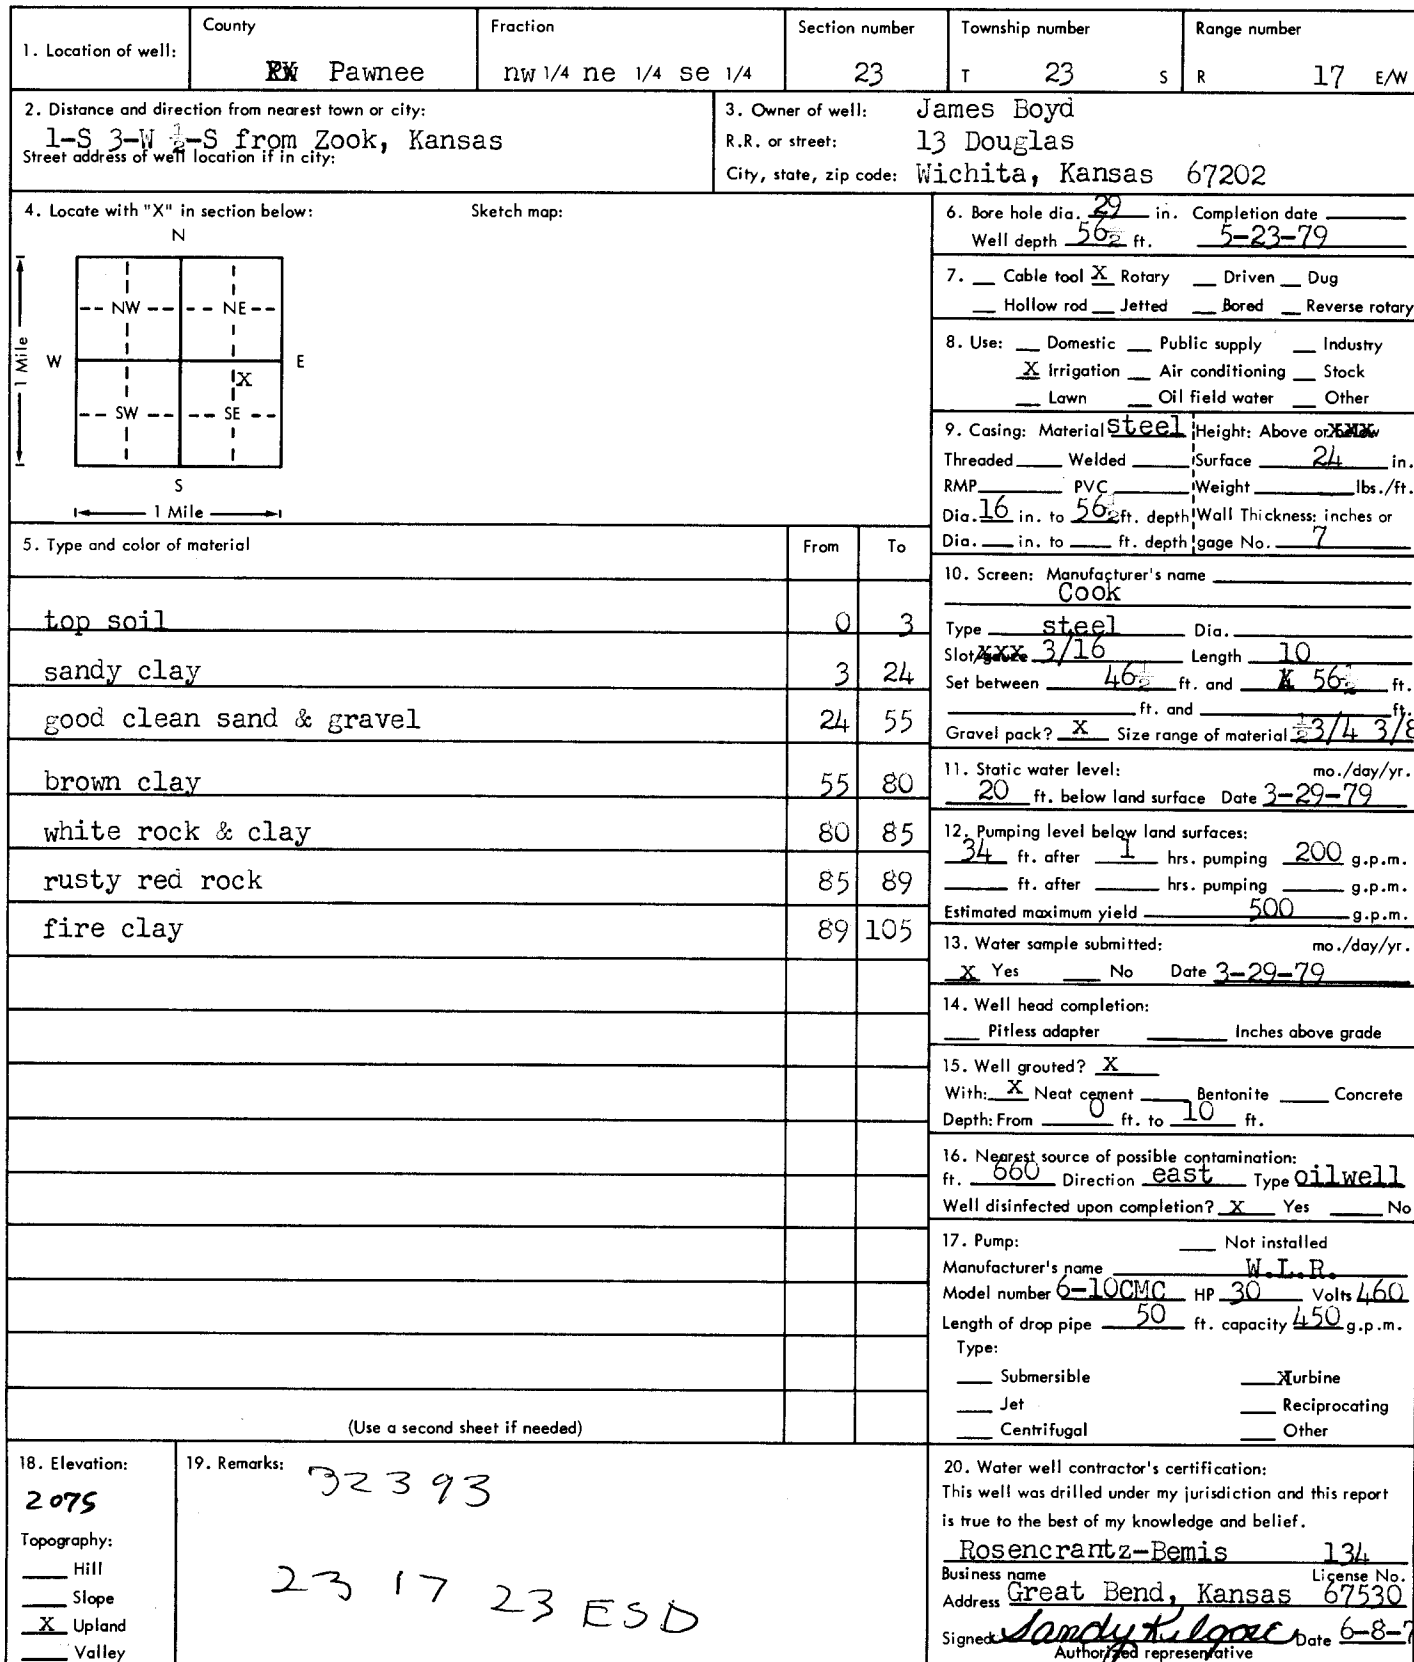 1. Location of well: County Pawnee Fraction nw 1/4 ne 1/4 se 1/4 Section number 23 Township number T 23 S Range number R 17 E/W
2. Distance and direction from nearest town or city:
1-S 3-W ½-S from Zook, Kansas
Street address of well location if in city:
3. Owner of well: James Boyd
R.R. or street: 13 Douglas
City, state, zip code: Wichita, Kansas 67202
4. Locate with "X" in section below: Sketch map:
N
NW NE
W E
X
SW SE
S
1 Mile
1 Mile
5. Type and color of material From To
top soil 0 3
sandy clay 3 24
good clean sand & gravel 24 55
brown clay 55 80
white rock & clay 80 85
rusty red rock 85 89
fire clay 89 105
(Use a second sheet if needed)
6. Bore hole dia. 29 in. Completion date
Well depth 56½ ft. 5-23-79
7. Cable tool X Rotary Driven Dug
Hollow rod Jetted Bored Reverse rotary
8. Use: Domestic Public supply Industry
X Irrigation Air conditioning Stock
Lawn Oil field water Other
9. Casing: Material steel Height: Above or XXXX
Threaded Welded Surface 24 in.
RMP PVC Weight lbs./ft.
Dia. 16 in. to 56½ ft. depth Wall Thickness: inches or
Dia. in. to ft. depth gage No. 7
10. Screen: Manufacturer's name
Cook
Type steel Dia.
Slot/XXX 3/16 Length 10
Set between 46½ ft. and 56½ ft.
ft. and ft.
Gravel pack? X Size range of material ½ 3/4 3/8
11. Static water level: mo./day/yr.
20 ft. below land surface Date 3-29-79
12. Pumping level below land surfaces:
34 ft. after 1 hrs. pumping 200 g.p.m.
ft. after hrs. pumping g.p.m.
Estimated maximum yield 500 g.p.m.
13. Water sample submitted: mo./day/yr.
X Yes No Date 3-29-79
14. Well head completion:
Pitless adapter Inches above grade
15. Well grouted? X
With: X Neat cement Bentonite Concrete
Depth: From 0 ft. to 10 ft.
16. Nearest source of possible contamination:
ft. 660 Direction east Type oilwell
Well disinfected upon completion? X Yes No
17. Pump: Not installed
Manufacturer's name W.L.R.
Model number 6-10CMC HP 30 Volts 460
Length of drop pipe 50 ft. capacity 450 g.p.m.
Type:
Submersible X Turbine
Jet Reciprocating
Centrifugal Other
18. Elevation:
2075
Topography:
Hill
Slope
X Upland
Valley
19. Remarks: 32393
23 17 23 ESD
20. Water well contractor's certification:
This well was drilled under my jurisdiction and this report
is true to the best of my knowledge and belief.
Rosencrantz-Bemis 134
Business name License No.
Address Great Bend, Kansas 67530
Signed Sandy Kilgore Date 6-8-7
Authorized representative